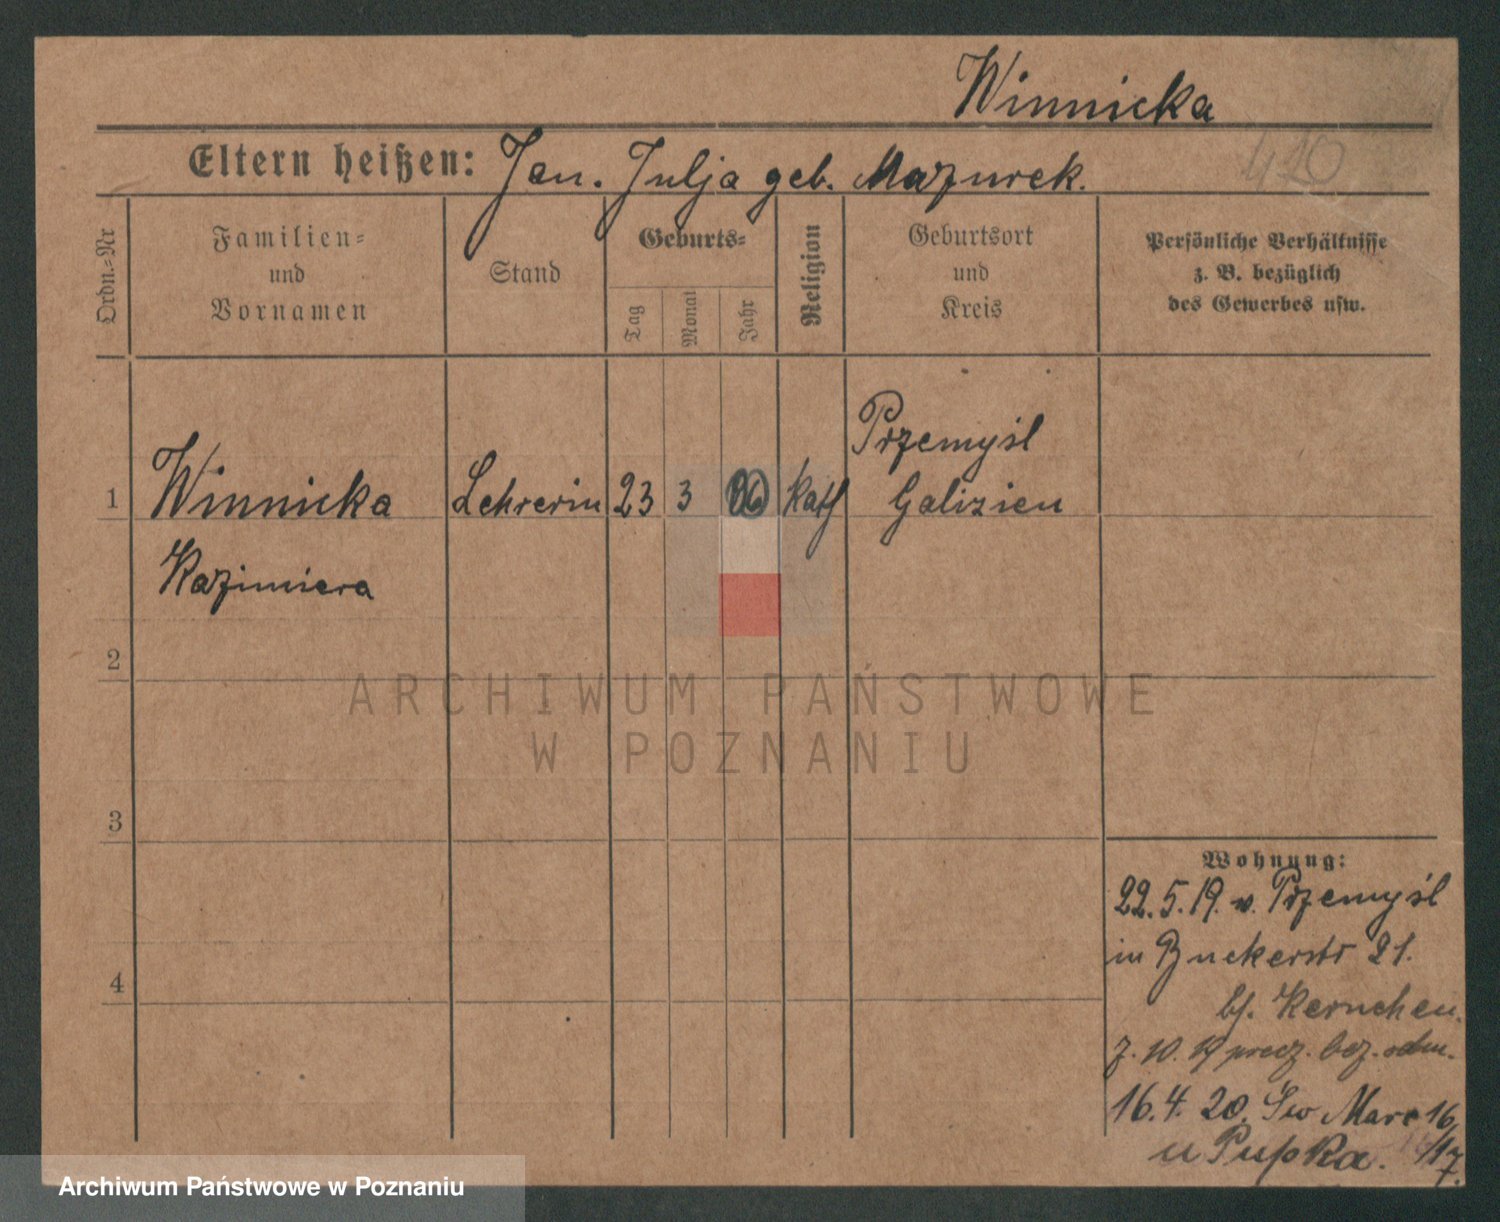 Winnicka
420
Eltern heißen: Jan. Julja geb. Mazurek.
Ordn.=Nr
Familien=
und
Vornamen
Stand
Geburts=
Tag
Monat
Jahr
Religion
Geburtsort
und
Kreis
Persönliche Verhältnisse
z. B. bezüglich
des Gewerbes usw.
Przemyśl
1 Winnicka Lehrerin 23 3 96 Kath Galizien
Kazimiera
2
ARCHIWUM PAŃSTWOWE
W POZNANIU
3
4
Wohnung:
22.5.19. v. Przemyśl
in Buckerstr 21.
bf. Kernchen.
7. 10. 19 bez.
16.4.20. Św Marc 16/17.
u Pupka.
Archiwum Państwowe w Poznaniu